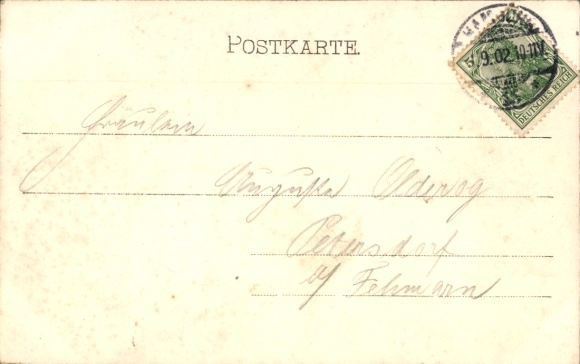 POSTKARTE.
HAMBURG
.9.02.10-11V.
DEUTSCHES REICH
5
Fräulein
Auguste Olderog
Petersdorf
b/ Fehmarn